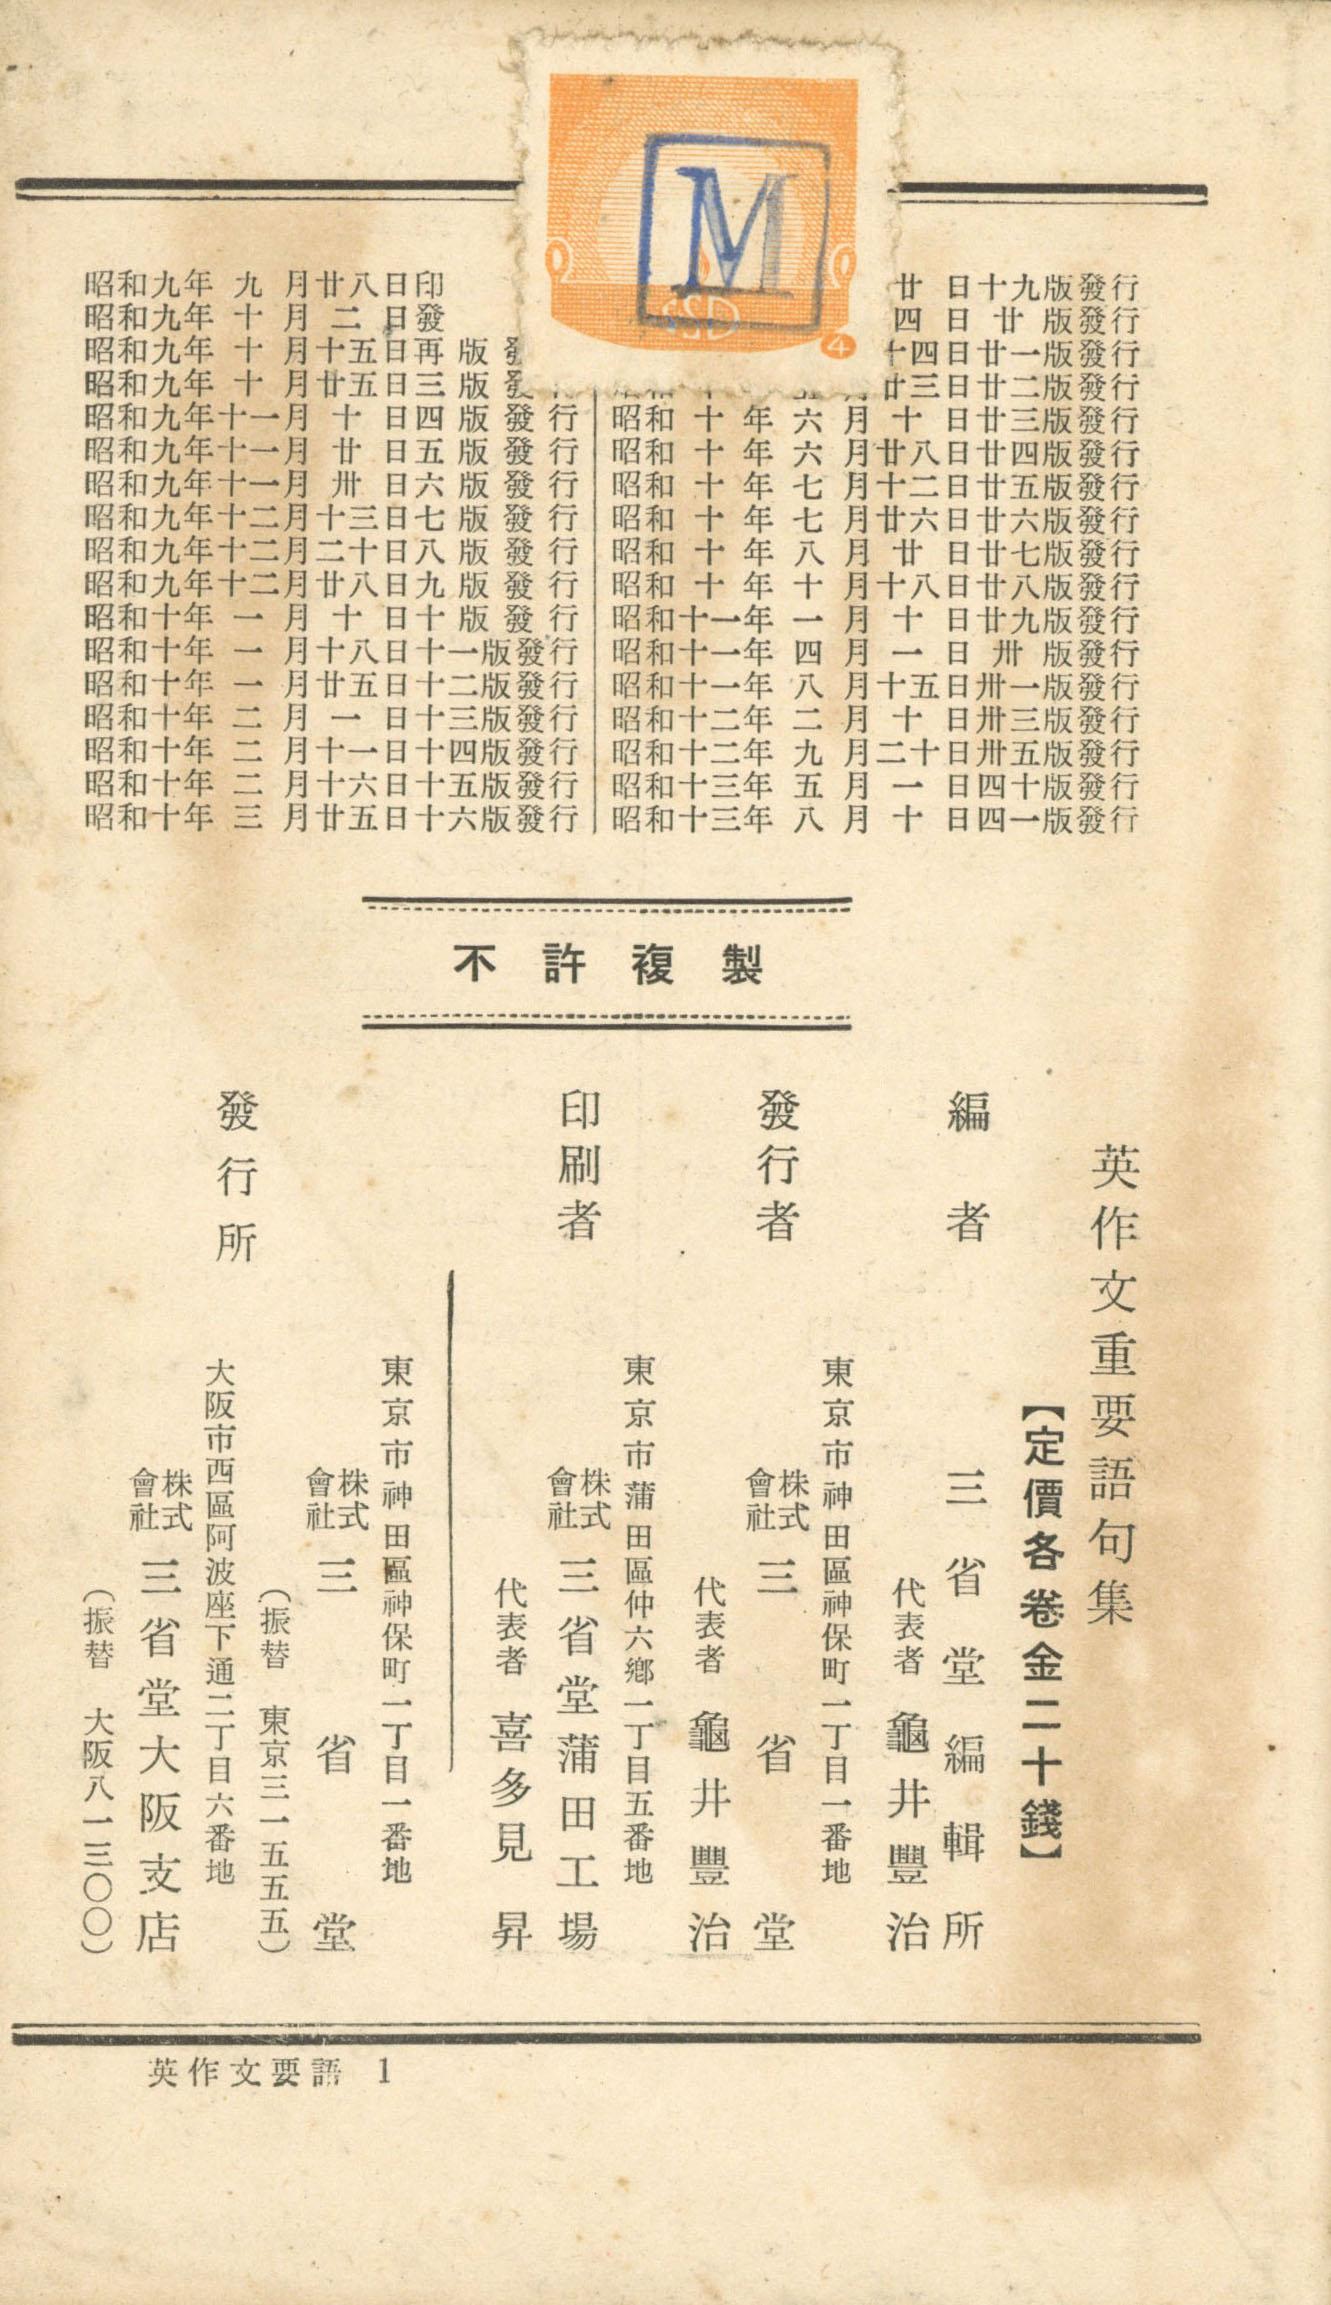 昭和九年九月廿八日印
昭和九年十月二日發
昭和九年十月十五日再版發
昭和九年十月廿五日三版發行
昭和九年十一月十日四版發行
昭和九年十一月廿日五版發行
昭和九年十一月卅日六版發行
昭和九年十二月十三日七版發行
昭和九年十二月二十日八版發行
昭和九年十二月廿八日九版發行
昭和十年一月十日十版發行
昭和十年一月十八日十一版發行
昭和十年一月廿五日十二版發行
昭和十年二月一日十三版發行
昭和十年二月十一日十四版發行
昭和十年二月十六日十五版發行
昭和十年三月廿五日十六版發行
廿日十九版發行
四日廿版發行
十四日廿一版發行
廿三日廿二版發行
昭和十年六月十日廿三版發行
昭和十年六月廿八日廿四版發行
昭和十年七月十二日廿五版發行
昭和十年七月廿六日廿六版發行
昭和十年八月廿日廿七版發行
昭和十年十月十八日廿八版發行
昭和十一年一月十日廿九版發行
昭和十一年四月一日卅版發行
昭和十一年八月十五日卅一版發行
昭和十二年二月十日卅三版發行
昭和十二年九月二十日卅五版發行
昭和十三年五月一日四十版發行
昭和十三年八月十日四一版發行
M
SSD
4
不許複製
英作文重要語句集
【定價各卷金二十錢】
編者 三省堂編輯所
代表者 龜井豐治
東京市神田區神保町一丁目一番地
發行者 株式會社 三省堂
代表者 龜井豐治
東京市蒲田區仲六鄉一丁目五番地
印刷者 株式會社 三省堂蒲田工場
代表者 喜多見昇
東京市神田區神保町一丁目一番地
發行所 株式會社 三省堂
（振替 東京三一五五五）
大阪市西區阿波座下通二丁目六番地
株式會社 三省堂大阪支店
（振替 大阪八一三〇〇）
英作文要語 1